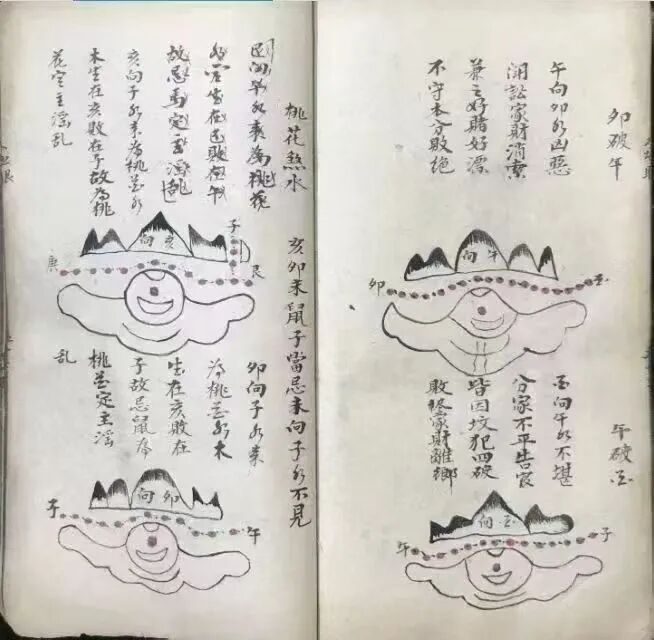 卯破午
午向卯水凶惡
闹訟家財消索
兼之好賭好漂
不守本分敗絕
午向
酉
卯
午破酉
酉向午水不堪
分家不平告官
皆因坟犯四破
敗終家財離鄉
酉向
子
午
桃花煞水
亥卯未鼠子當忌未向子水不見
向午水来為桃花
生在巳敗在午
故忌馬定主滛乱
亥向子水来為桃花水
木生在亥敗在子故為桃
花定主滛乱
子
亥向
艮
庚
卯向子水来
為桃花水木
生在亥敗在
子故忌鼠本
桃花定主滛
乱
卯向
午
子